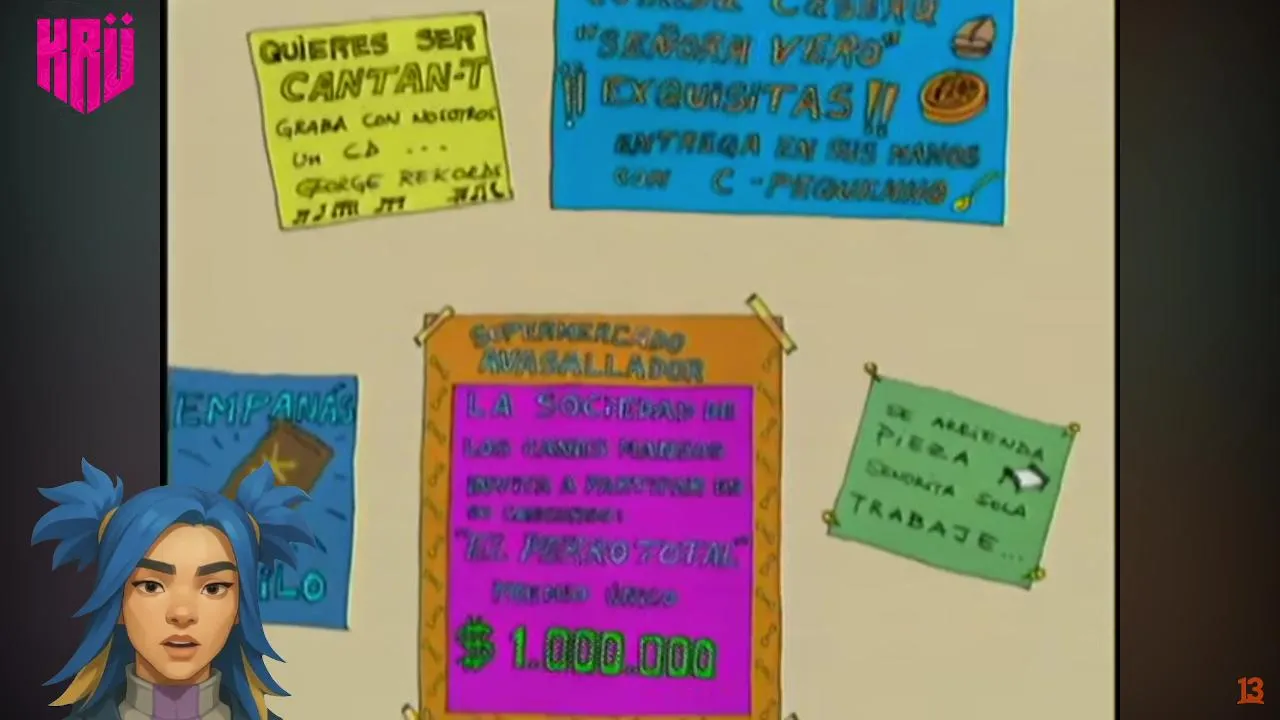 KRÜ
QUIERES SER
CANTAN-T
GRABA CON NOSOTROS
UN CD ...
GEORGE REKORDS
"SEÑORA VERO"
¡¡ EXQUISITAS !!
ENTREGA EN SUS MANOS
CON C-PEQUENINO
EMPANÁS
ILO
SUPERMERCADO
AVASALLADOR
LA SOCIEDAD DE
LOS CANES MANSOS
INVITA A PARTICIPAR EN
SU CONCURSO:
"EL PERRO TOTAL"
PREMIO ÚNICO
$ 1.000.000
SE ARRIENDA
PIEZA
SEÑORITA SOLA
TRABAJE...
13